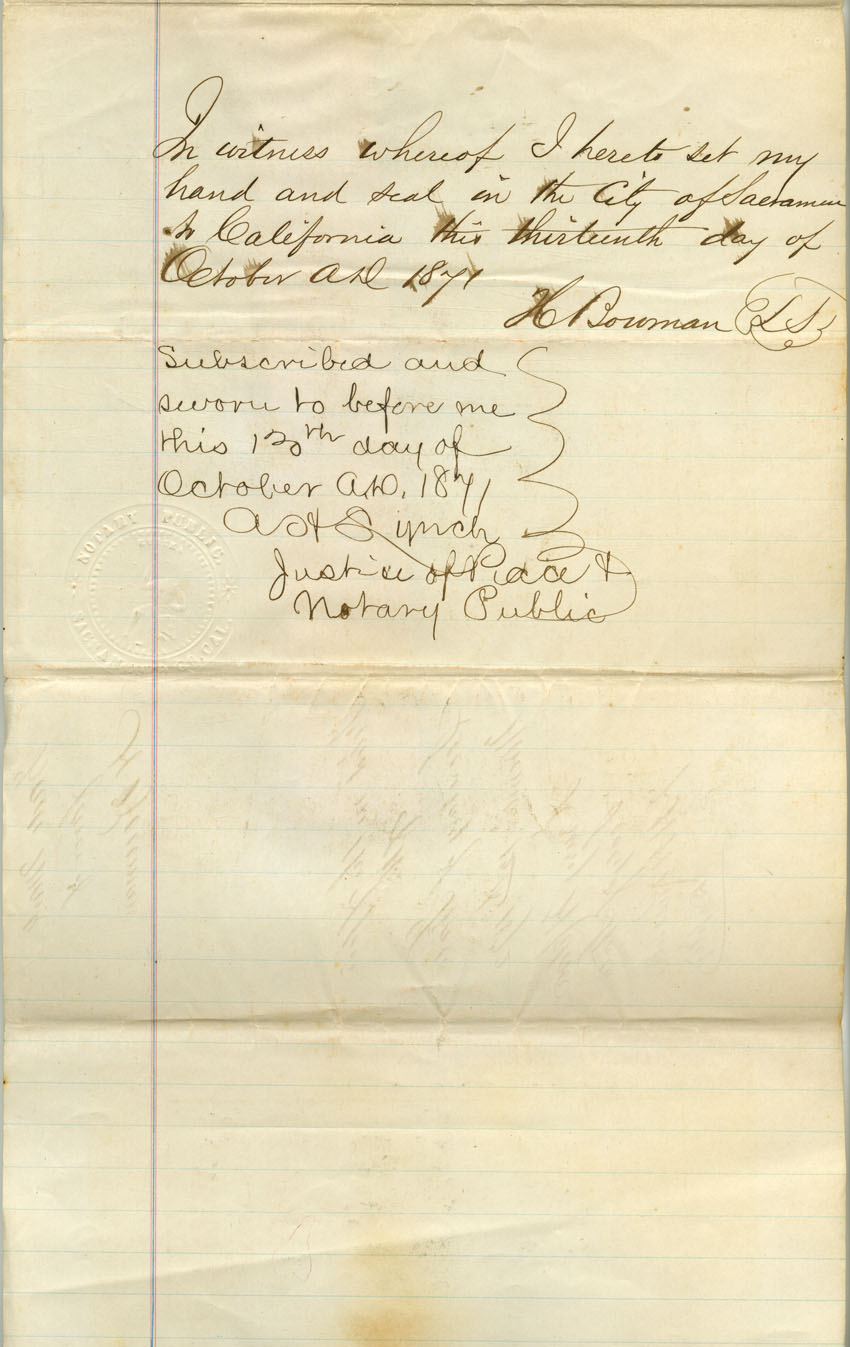 In witness whereof I hereto set my
hand and seal in the City of Sacramen
to California this thirteenth day of
October A.D. 1871
H Bowman L.S.
Subscribed and
sworn to before me
this 13th day of
October A.D. 1871
A H Lynch
Justice of Peace &
Notary Public
NOTARY PUBLIC
CAL.